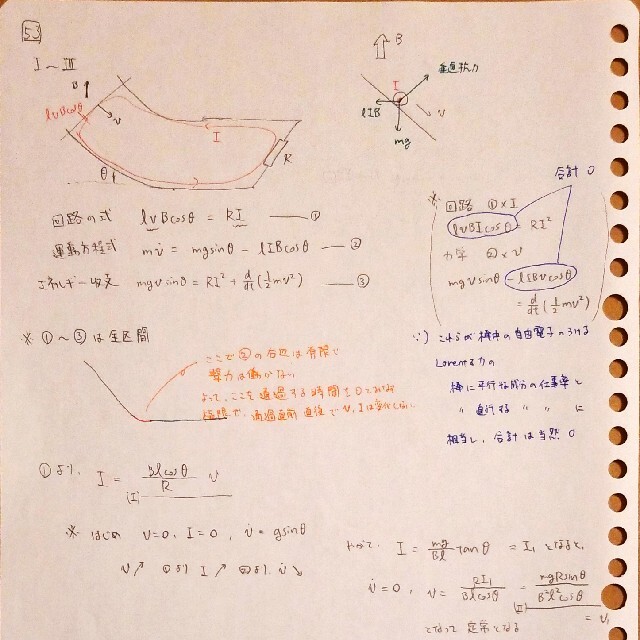 53
I～III
B
v
lvBcosθ
I
R
θ
B
垂直抗力
I
lIB
v
mg
回路の式 lvBcosθ = RI ——①
運動方程式 mv̇ = mgsinθ − lIBcosθ ——②
エネルギー収支 mgvsinθ = RI² + d/dt(1/2 mv²) ——③
合計 0
※ 回路 ①×I
lvBIcosθ = RI²
力学 ②×v
mgvsinθ − lIBvcosθ
= d/dt(1/2 mv²)
※ ①～③は全区間
ここで②の右辺は有限で
撃力は働かない
よって、ここを通過する時間
通過直前 直後でv, Iは変化しない
∵) これらが棒中の自由電子のうける
Lorentz力の
棒に平行な成分の仕事率と
〃 直行する 〃 〃 に
相当し、合計は当然 0
①より, I = Blcosθ/R v
(I)
※ はじめ v=0, I=0, v̇ = gsinθ
v↗ ①より I↗ ②より v̇↘
やがて, I = mg/Bl tanθ = I₁ となると,
v̇ = 0, v = RI₁/Blcosθ = mgRsinθ/B²l²cos²θ
(II)
= v₁
となって 定常となる